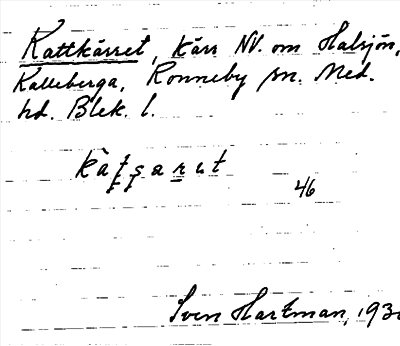 Kattkärret, kärr NV. om Halsjön,
Kalleberga, Ronneby sn. Med.
hd. Blek. l.
kàtsarut
46
Sven Hartman, 193